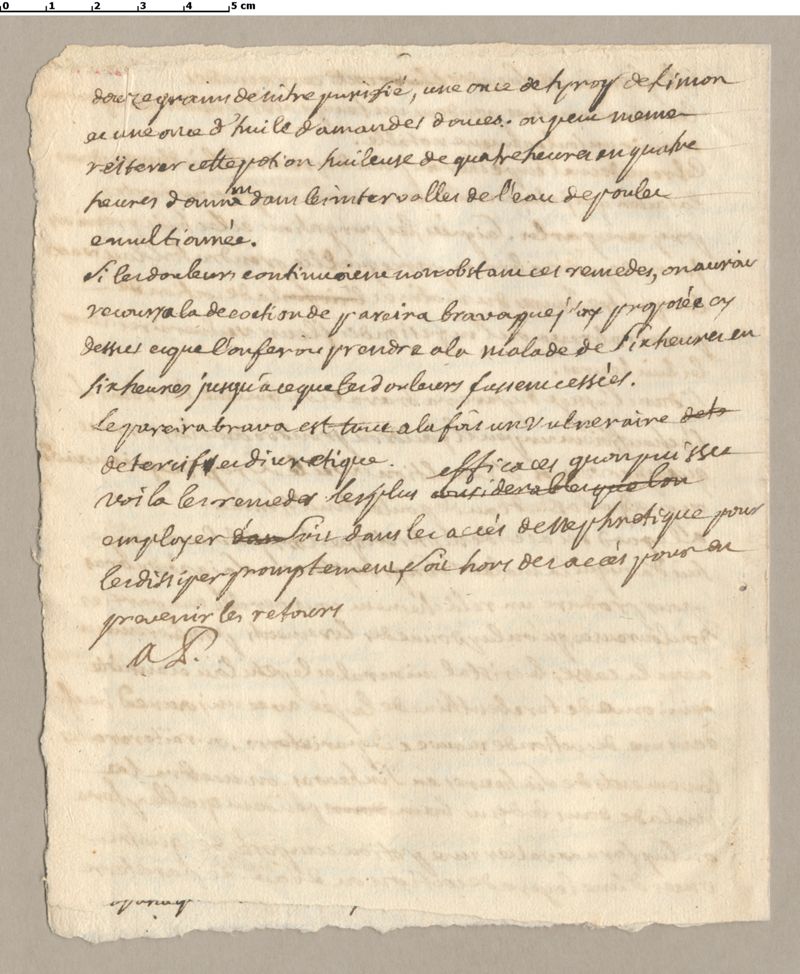 0 1 2 3 4 5 cm
douze grains de nitre purifié, une once de syrop de limon
et une once d'huile d'amandes douces. on peut meme
reïterer cette potion huileuse de quatre heures en quatre
heures donnant dans les intervalles de l'eau de poulet
emultionnée.
Si les douleurs continuoient nonobstant ces remedes, on auroit
recours a la decoction de pareira brava que j'ay proposée cy
dessus et que l'on feroit prendre a la malade de six heures en
six heures jusqu'a ce que les douleurs fussent cessées.
Le pareira brava est tout a la fois un vulneraire dets
detersif et diuretique.
efficaces qu'on puisse
voila les remedes les plus considerables que l'on
employer dans soit dans les accés de nephretique pour
les dissiper promptement, soit hors des accés pour en
prevenir les retours